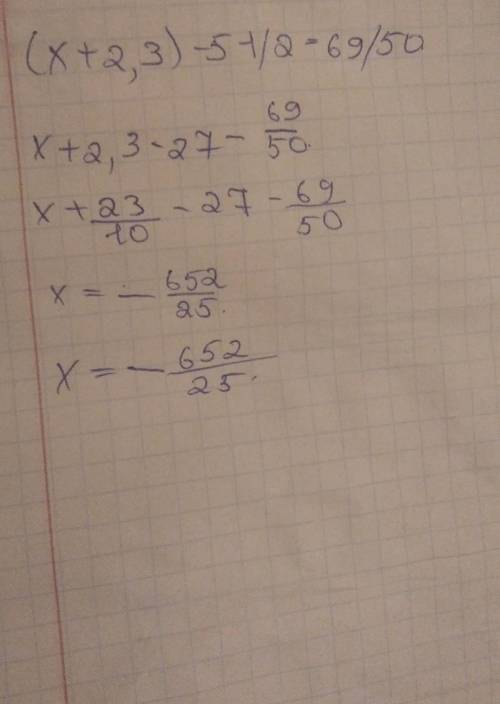 (x+2,3)-5-1/2=69/50
x+2,3-27-69/50.
x+23/10-27-69/50
x=-652/25.
x=-652/25.